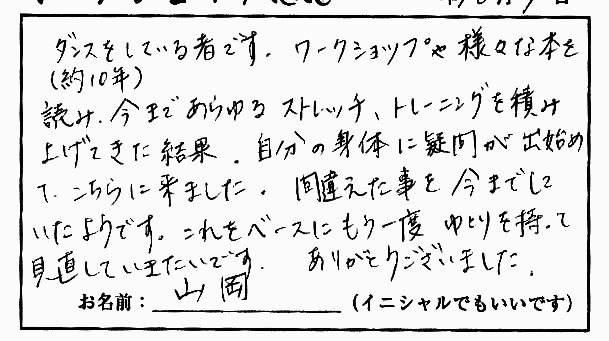 ダンスをしている者です。ワークショップや様々な本を
(約10年)
読み、今まであらゆるストレッチ、トレーニングを積み
上げてきた結果、自分の身体に疑問が出始め
て、こちらに来ました。間違えた事を今までして
いたようです。これをベースにもう一度ゆとりを持って
見直していきたいです。ありがとうございました。
お名前：山岡（イニシャルでもいいです）